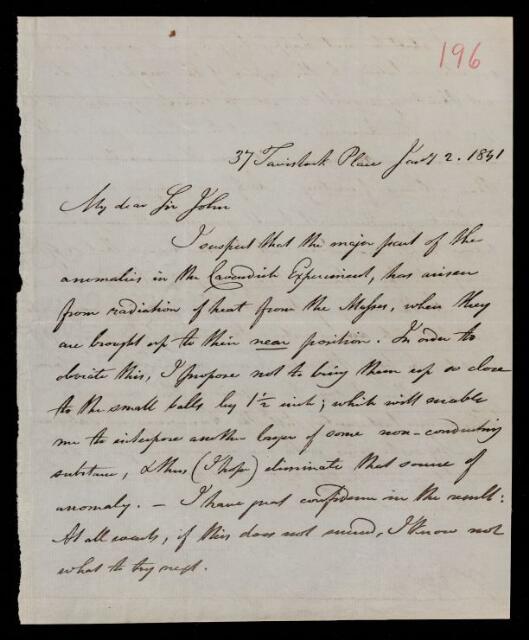 196
37 Tavistock Place Jany 2. 1841
My dear Sir John
I suspect that the major part of the
anomalies in the Cavendish Experiment, has arisen
from radiation of heat from the Masses, when they
are brought up to their near position. In order to
obviate this, I propose not to bring them up so close
to the small balls by 1½ inch; which will enable
me to interpose another layer of some non-conducting
substance, & thus (I hope) eliminate that source of
anomaly. — I have great confidence in the result:
At all events, if this does not succeed, I know not
what to try next.